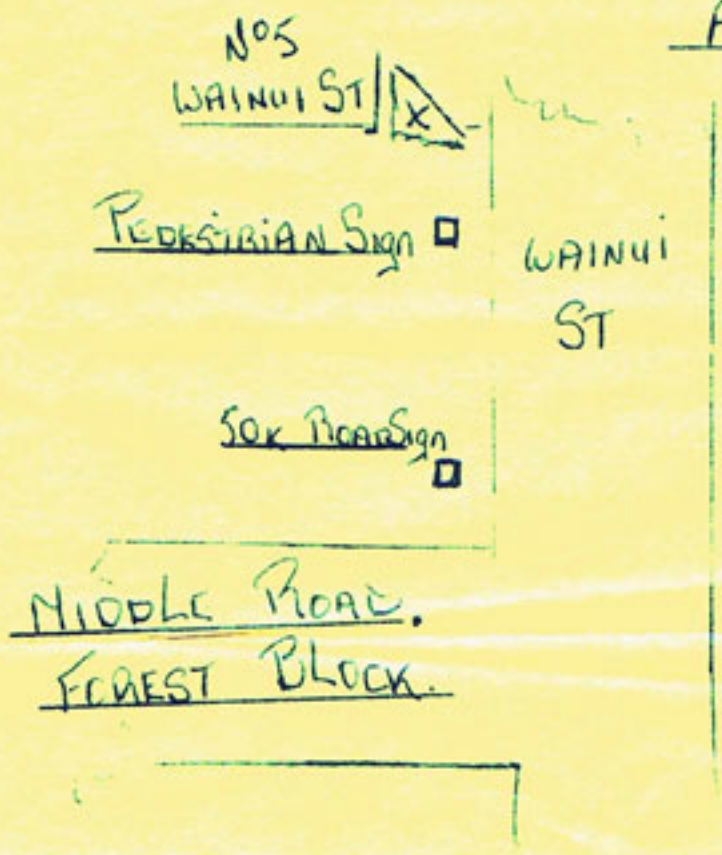 Nº5
WAINUI ST
X
PEDESTRIAN Sign
WAINUI
ST
50K ROADSign
MIDDLE ROAD.
FOREST BLOCK.